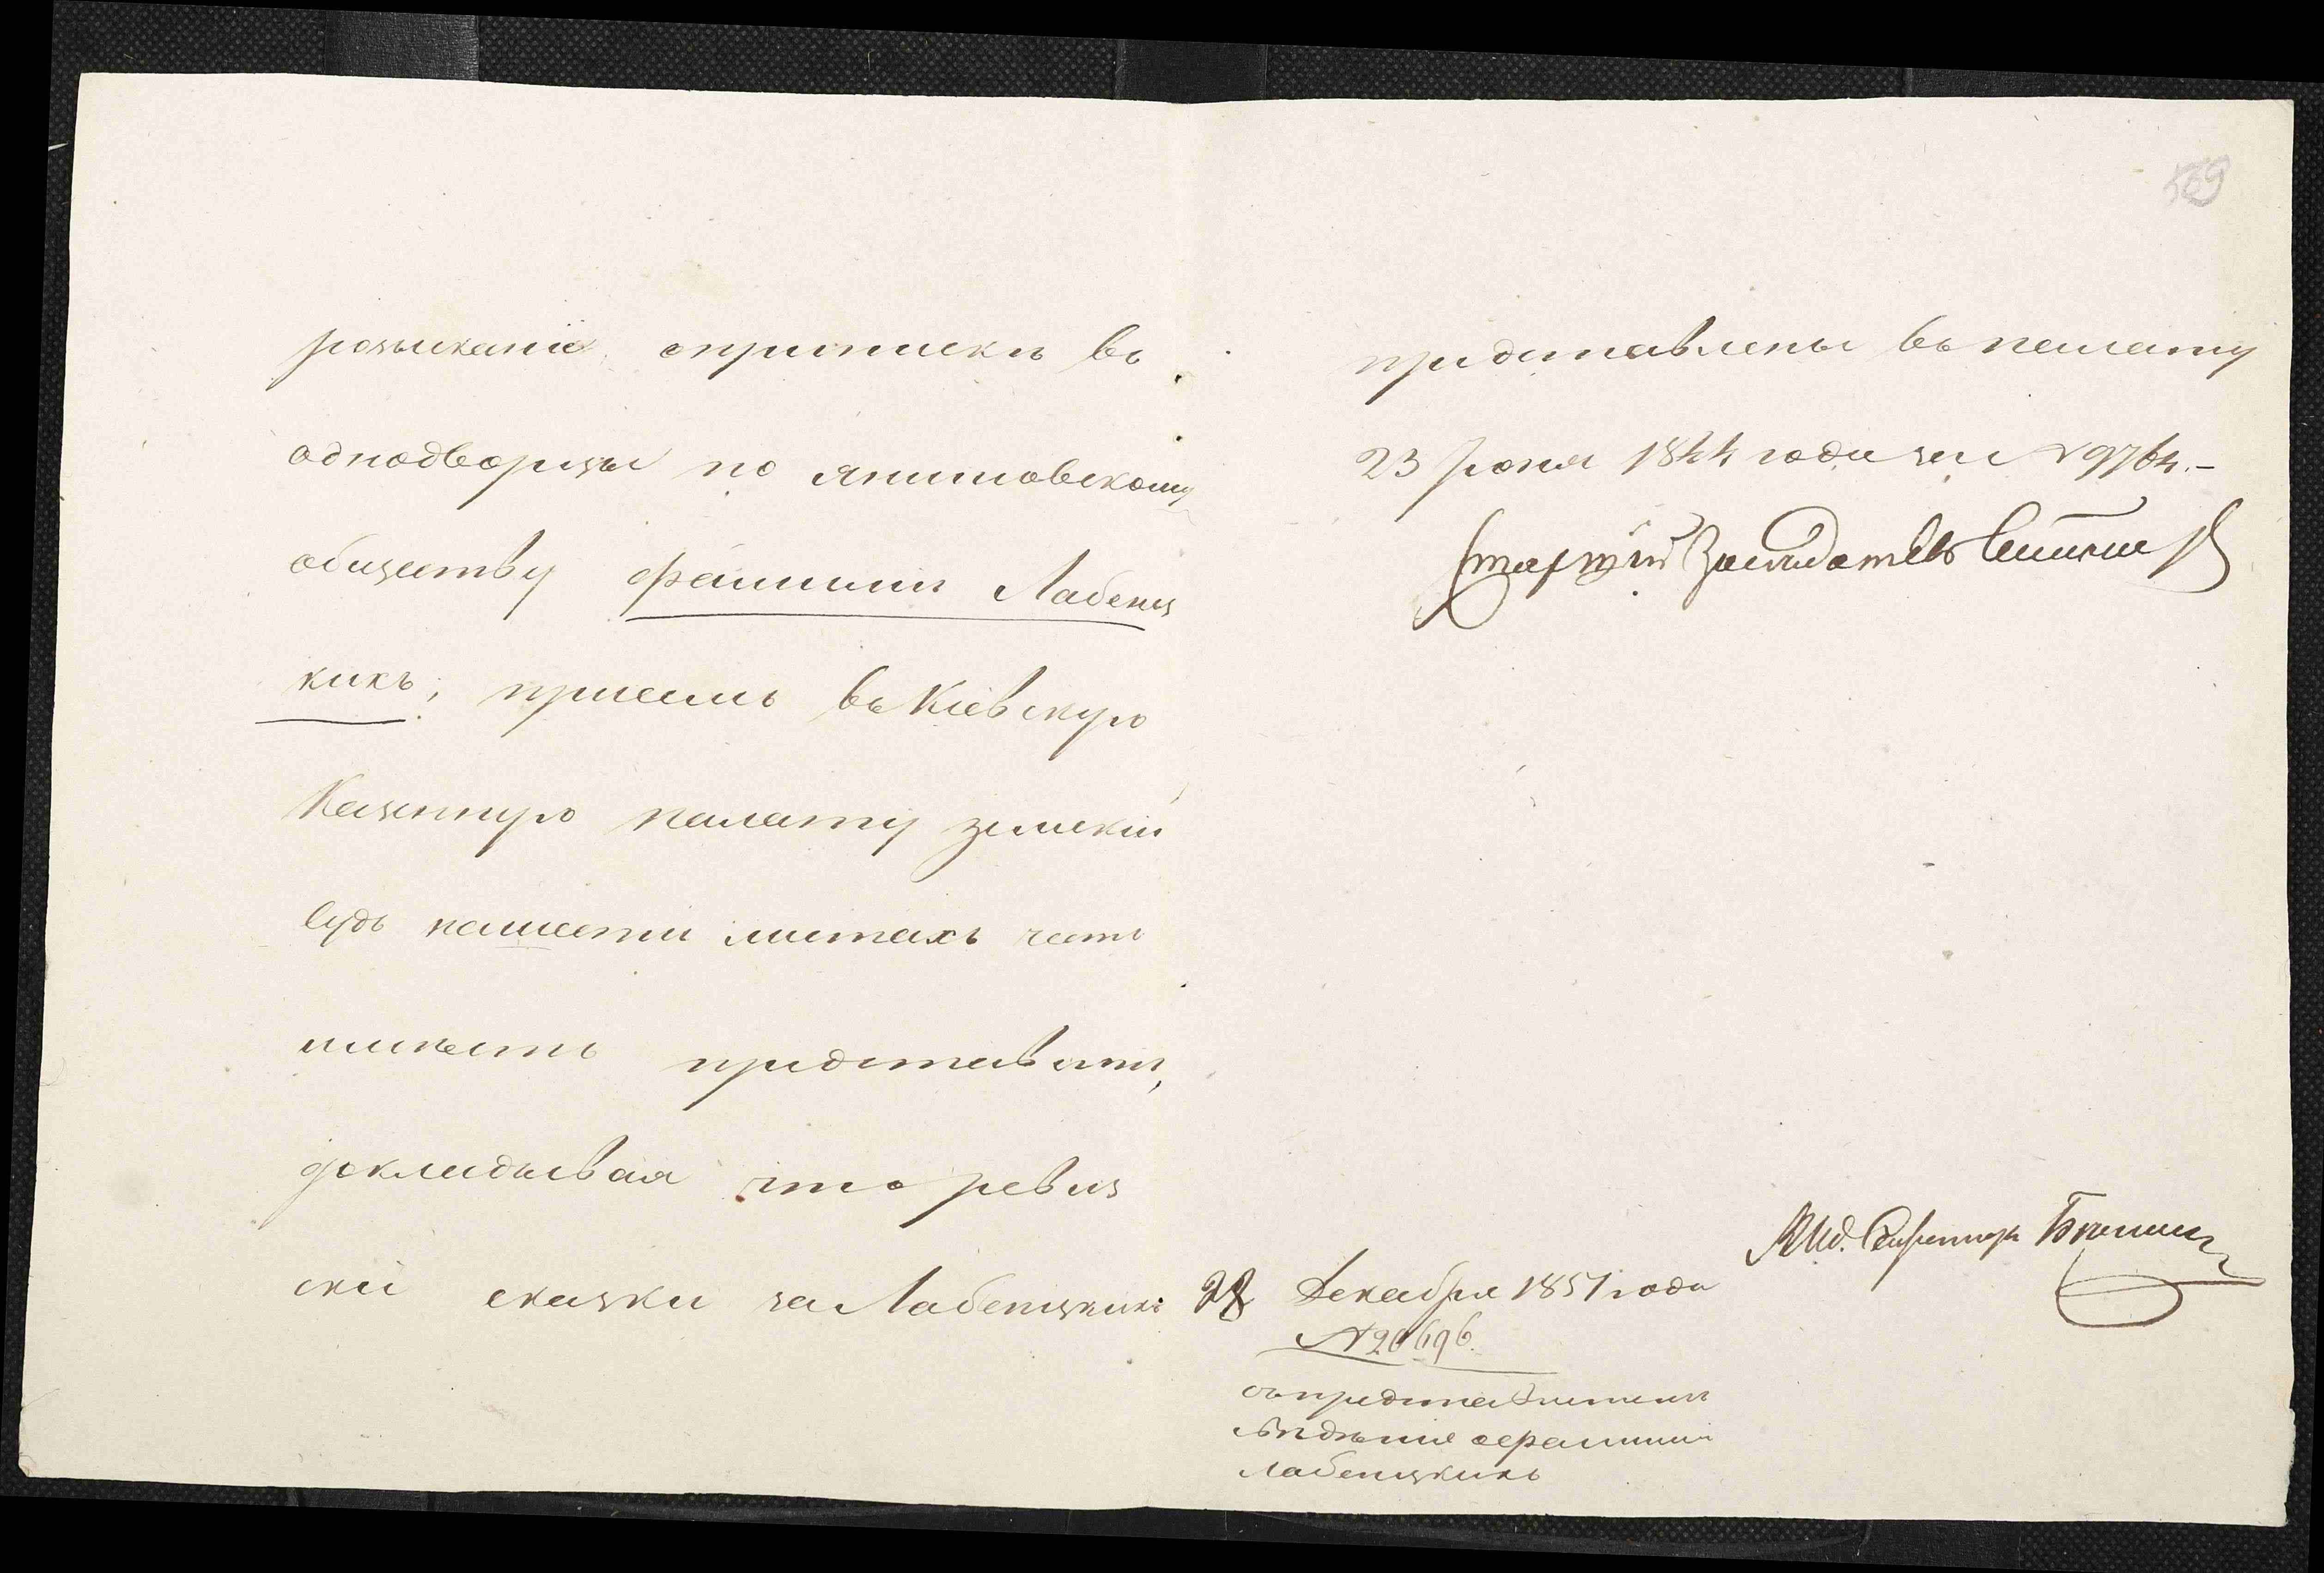 розысканіе оприпискѣ въ
однодворцы по Янишовскому
обществу фамиліи Лабенц
кихъ; присемъ въ Кіевскую
Казенную палату земскій
Судъ нашести листахъ честь
имѣетъ представить,
докладывая что ревиз
скіе сказки за Лабенцкихъ
569
представлены въ палату
23 Іюня 1844 года за № 9764.–
Старшій Засѣдатель
Секретарь
28 Декабря 1851 года
№ 20696.
съ представленіемъ
свѣдѣнія о фамиліи
Лабенцкихъ